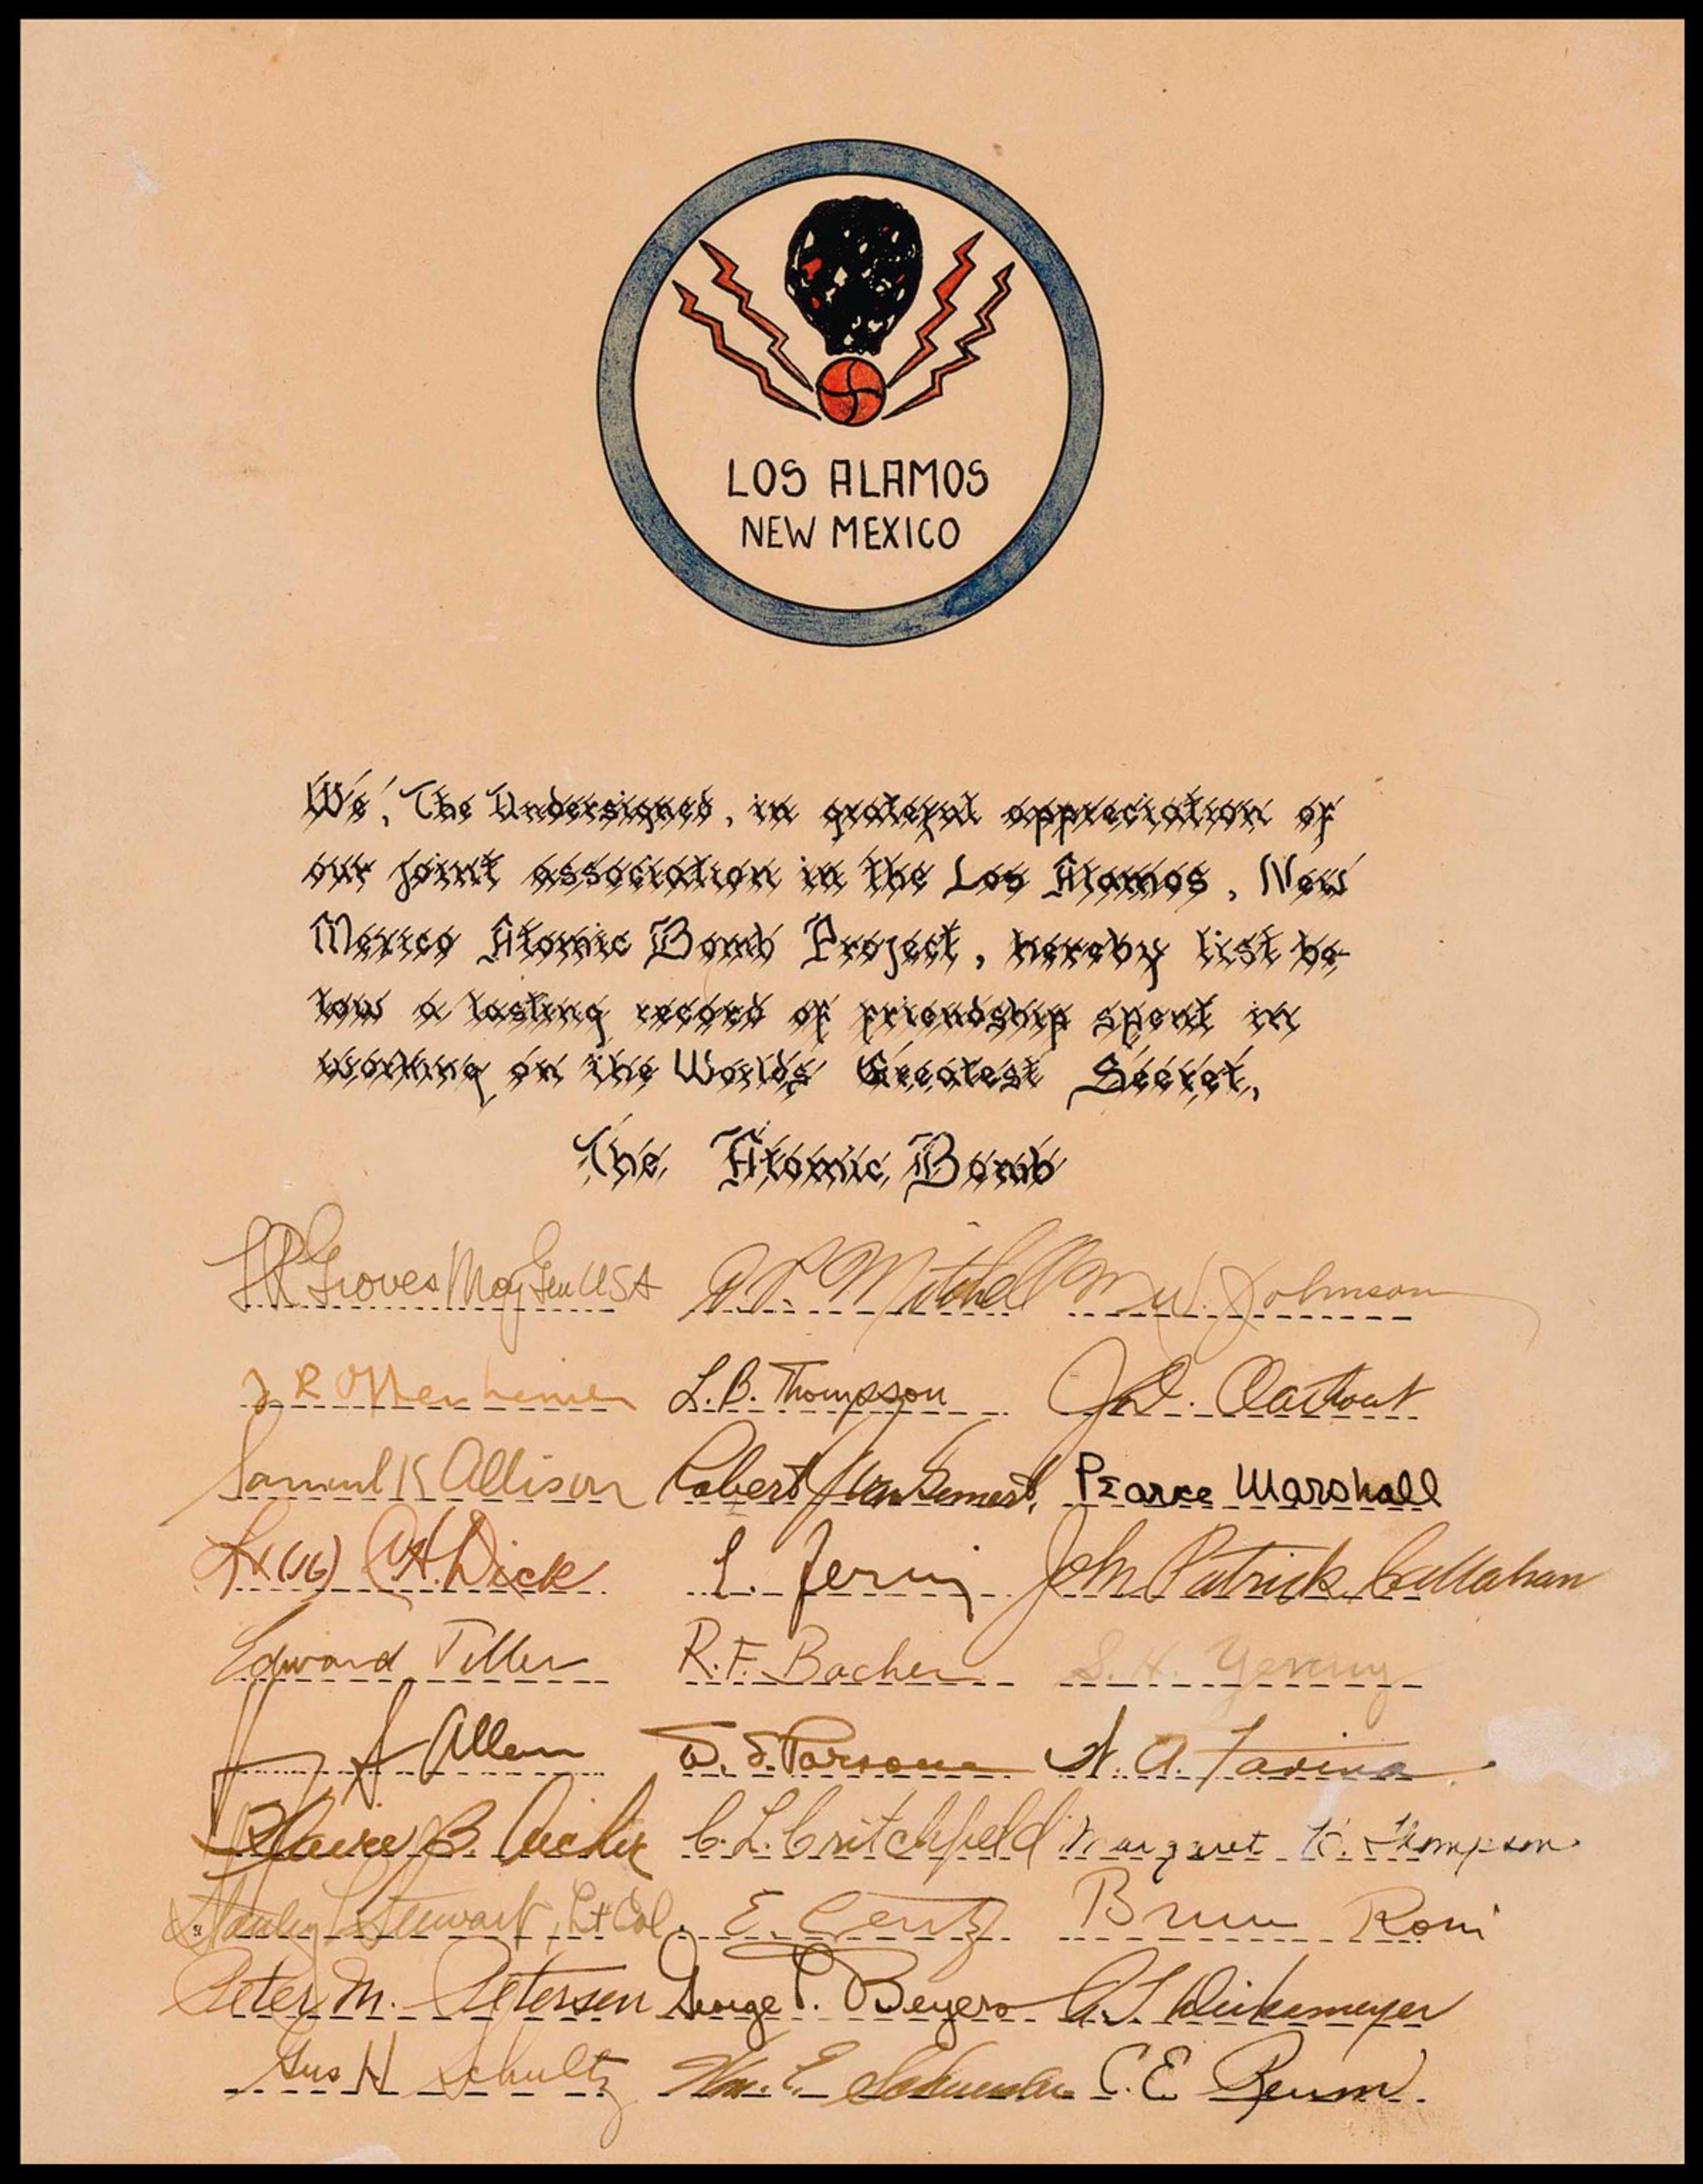 LOS ALAMOS
NEW MEXICO
We, The Undersigned, in grateful appreciation of
our joint association in the Los Alamos, New
Mexico Atomic Bomb Project, hereby list be-
low a lasting record of friendship spent in
working on the Worlds Greatest Secret,
The Atomic Bomb
LR Groves Maj Gen USA A. P. Mitchell M W. Johnson
J R Oppenheimer L. B. Thompson J. D.
Samuel K Allison Robert J Van Gemert, Pearce Marshall
Lt (jg) A. H. Dick E. Fermi John Patrick Callahan
Edward Teller R. F. Bacher S. H.
Allen W. S. Parsons N. A. Favina
B. C. L. Critchfield Margaret K. Thompson
Stanley L Stewart, Lt Col. E. Bruno Rossi
Peter M. Petersen George P. Beyers
Gus H Schultz Wm. E. C. E.